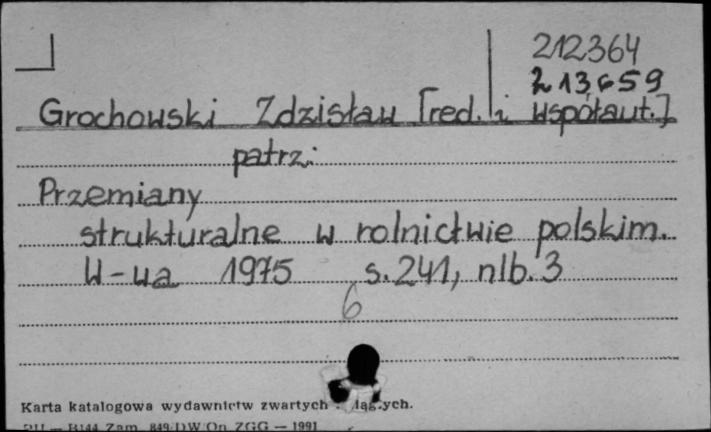 212364
213659
Grochowski Zdzisław [red. i współaut.]
patrz:
Przemiany
strukturalne w rolnictwie polskim.
W-wa 1975 s. 241, nlb. 3
6
Karta katalogowa wydawnictw zwartych
Zam. DW/On ZGG — 1991